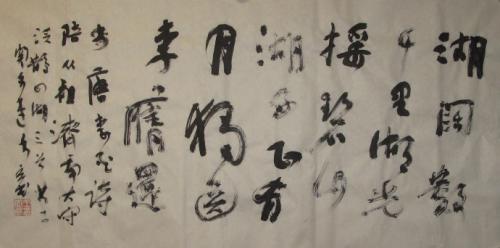 湖闊數
千里湖光
搖碧山
湖西正有
月獨送
李膺還
唐李白詩
陪從祖濟南太守
泛鵲山湖三首其二